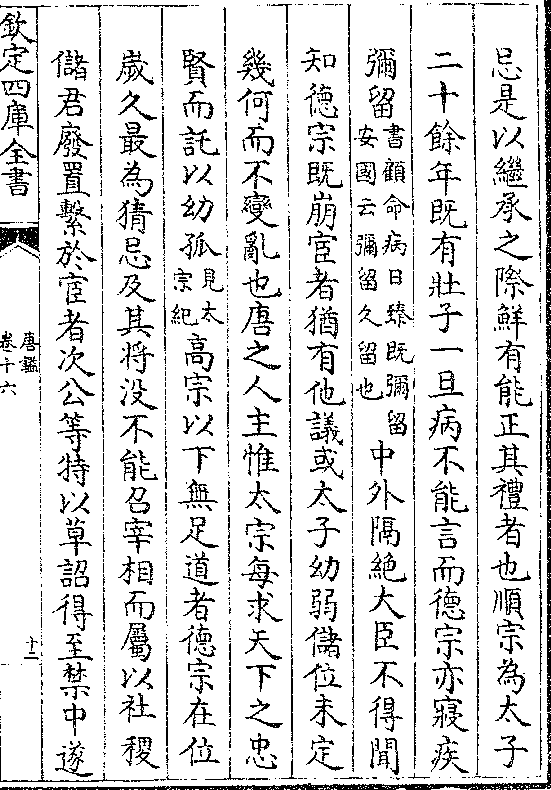 忌是以繼承之際鮮有能正其禮者也順宗為太子
二十餘年既有壯子一旦病不能言而德宗亦寢疾
彌留書顧命病日臻既彌留安國云彌留久留也中外隔絶大臣不得聞
知德宗既崩宦者猶有他議或太子幼弱儲位未定
幾何而不變亂也唐之人主惟太宗毎求天下之忠
賢而託以幼孤見太宗紀高宗以下無足道者德宗在位
嵗久最為猜忌及其將没不能召宰相而屬以社稷
儲君廢置繫於宦者次公等特以草詔得至禁中遂
欽定四庫全書
唐鑑
卷十六
十二